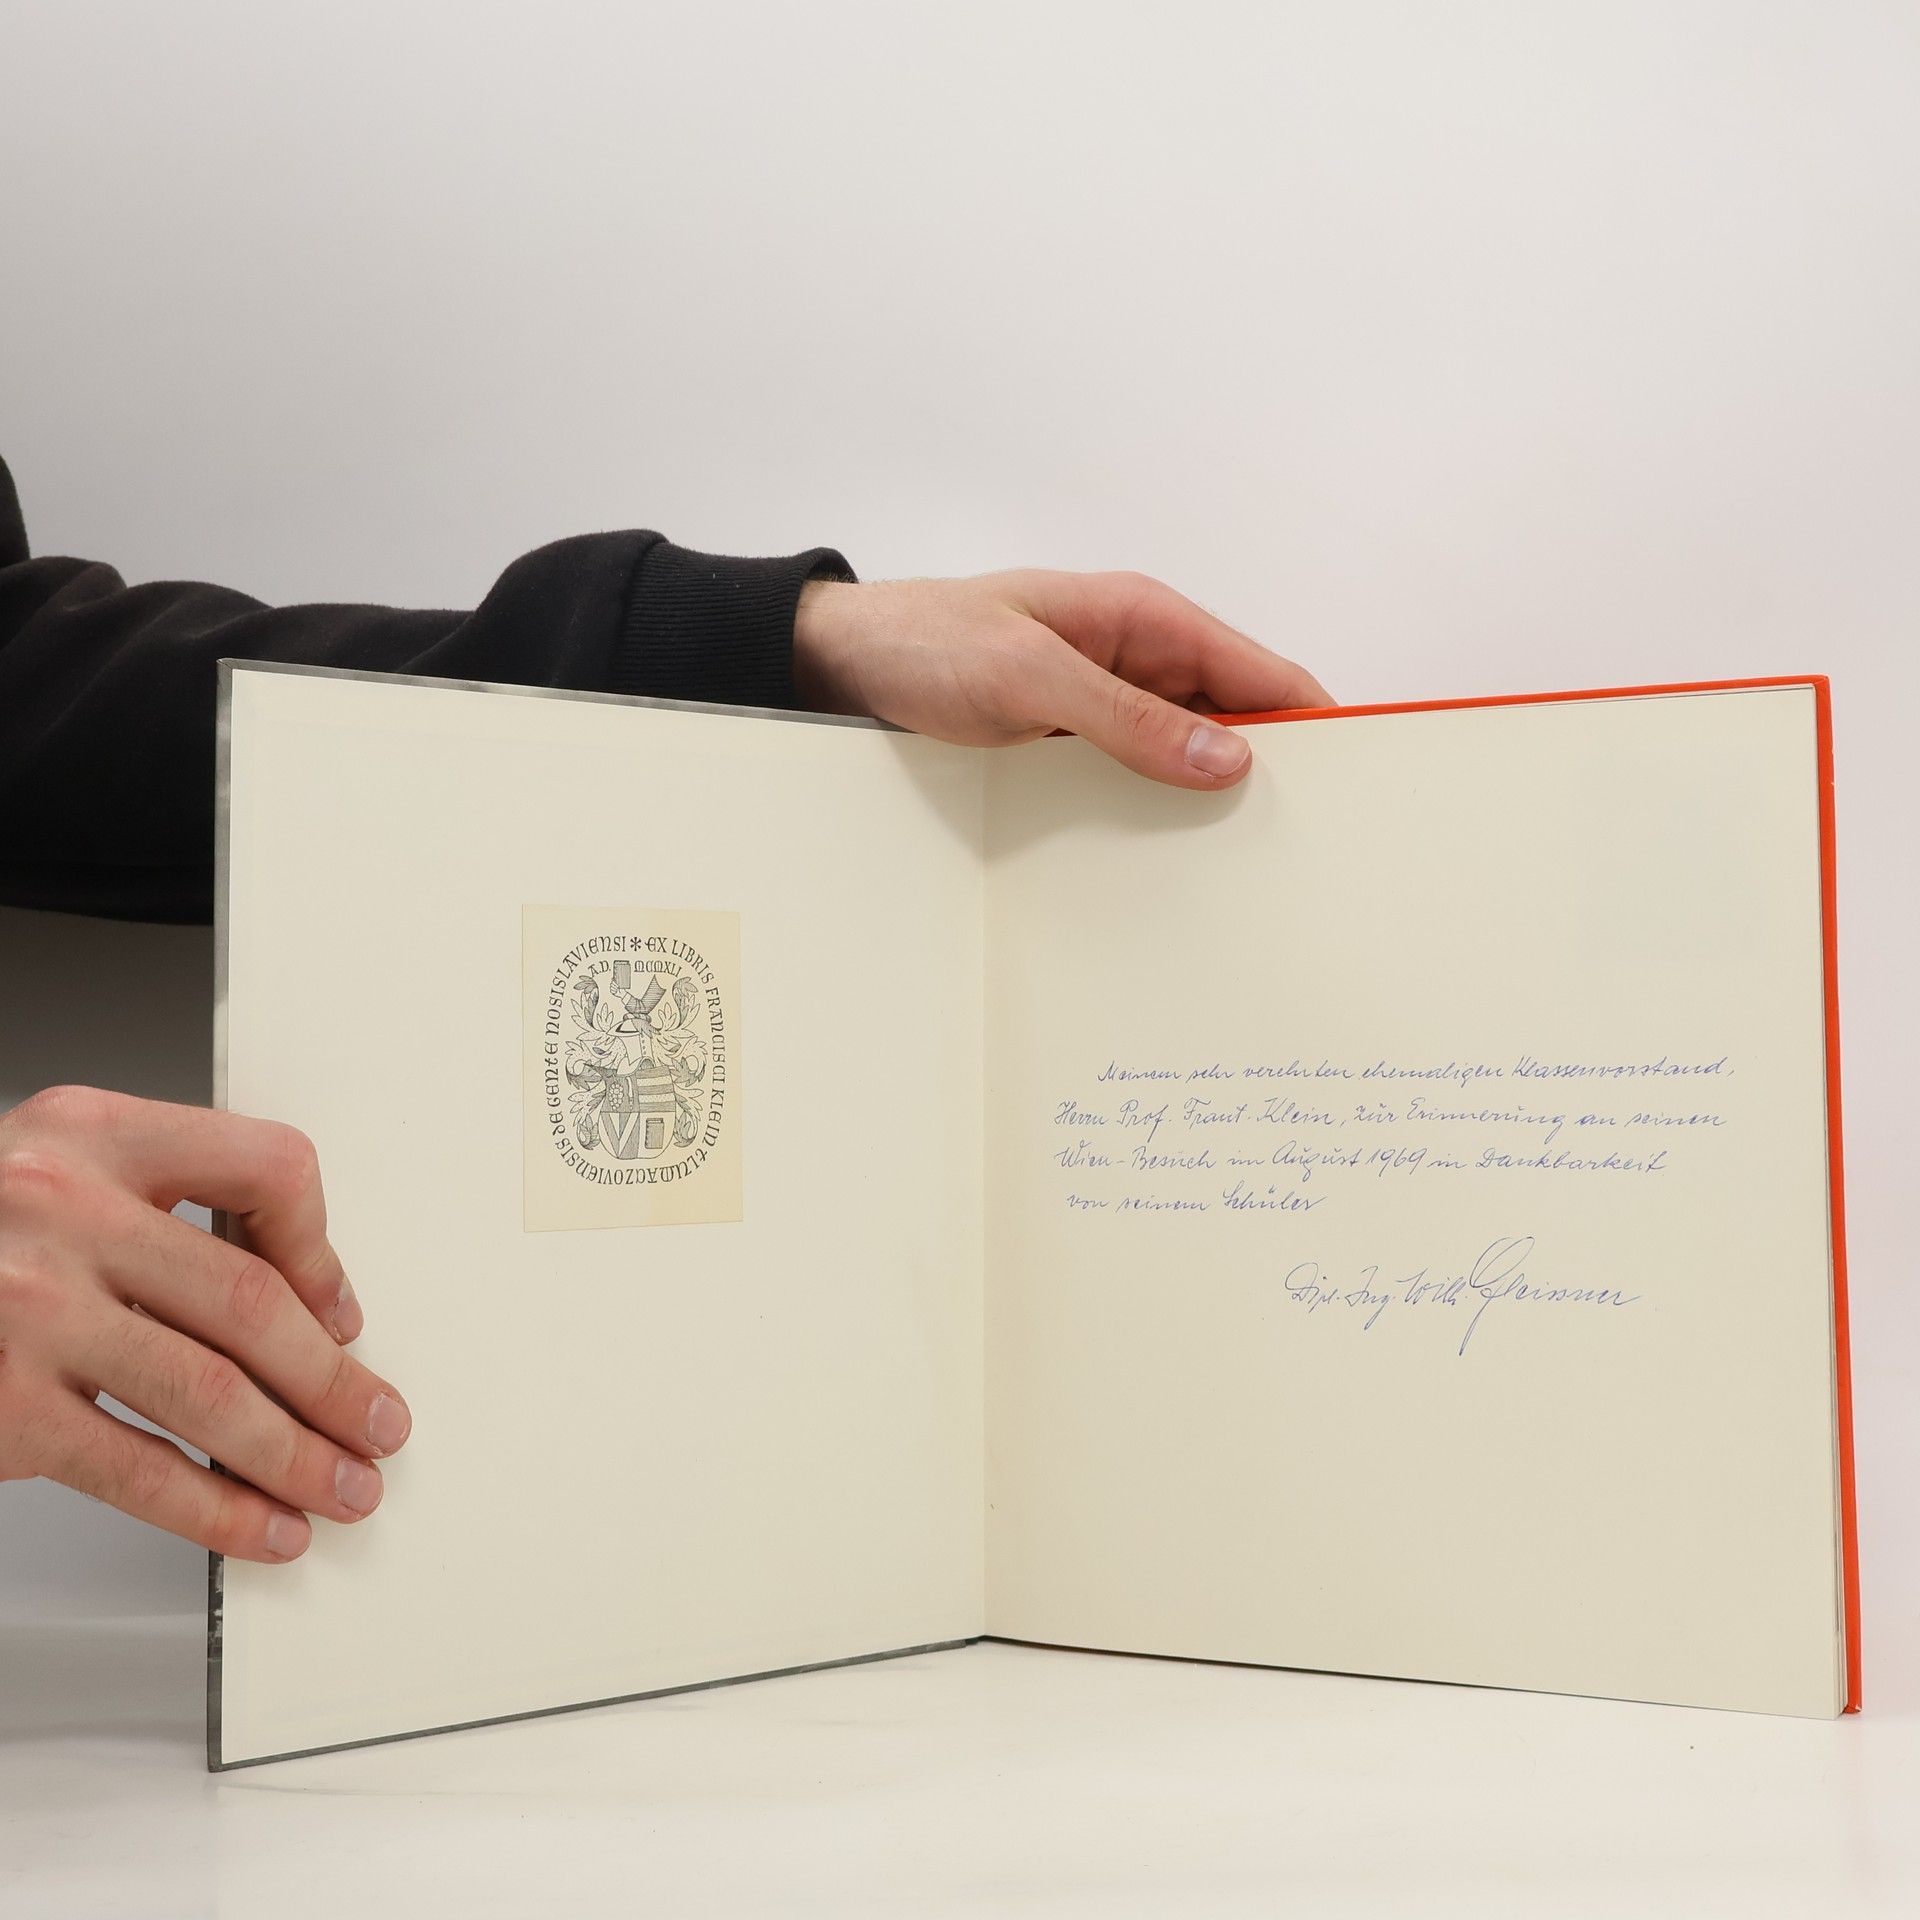 EX LIBRIS FRANCISCI KLEIN TLUMACZOVIENSIS DE GENTE NOSISLAVIENSI *
A.D. MCMXLI
Meinem sehr verehrten ehemaligen Klassenvorstand,
Herrn Prof. Frant. Klein, zur Erinnerung an seinen
Wien-Besuch im August 1969 in Dankbarkeit
von seinem Schüler
Dipl.-Ing. Wilh. Gleissner